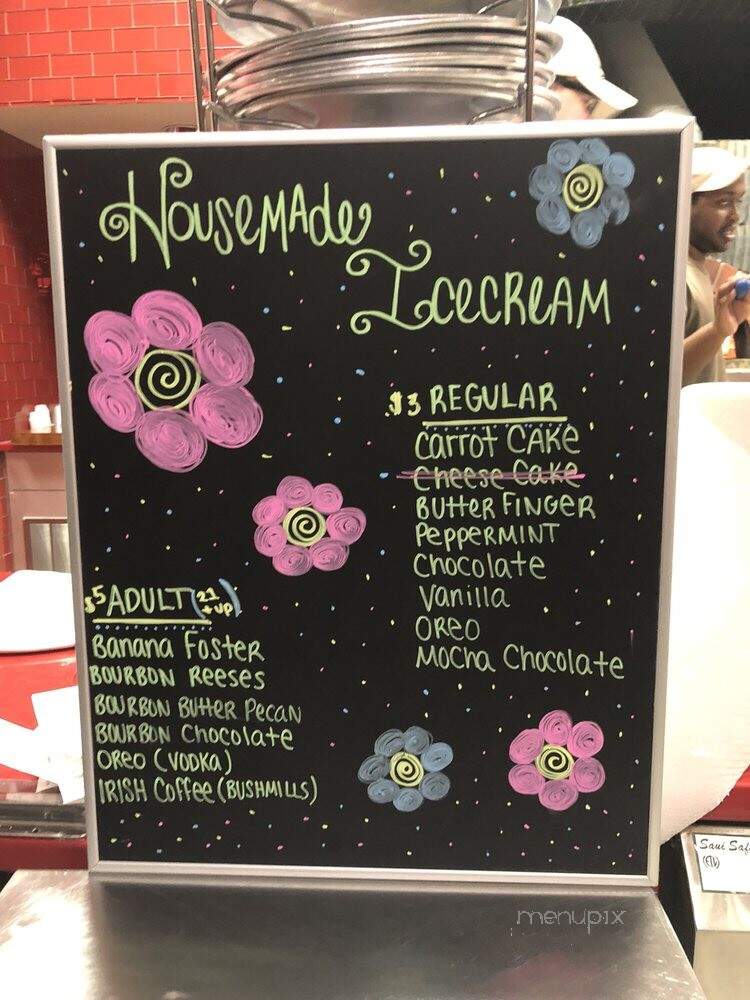 Housemade
Icecream
$3 REGULAR
Carrot CAKE
Cheese Cake
Butter Finger
Peppermint
Chocolate
Vanilla
OREO
Mocha Chocolate
$5 ADULT (21 + up)
Banana Foster
BOURBON Reeses
BOURBON Butter Pecan
BOURBON Chocolate
OREO (VODKA)
IRISH Coffee (BUSHMILLS)
menupix